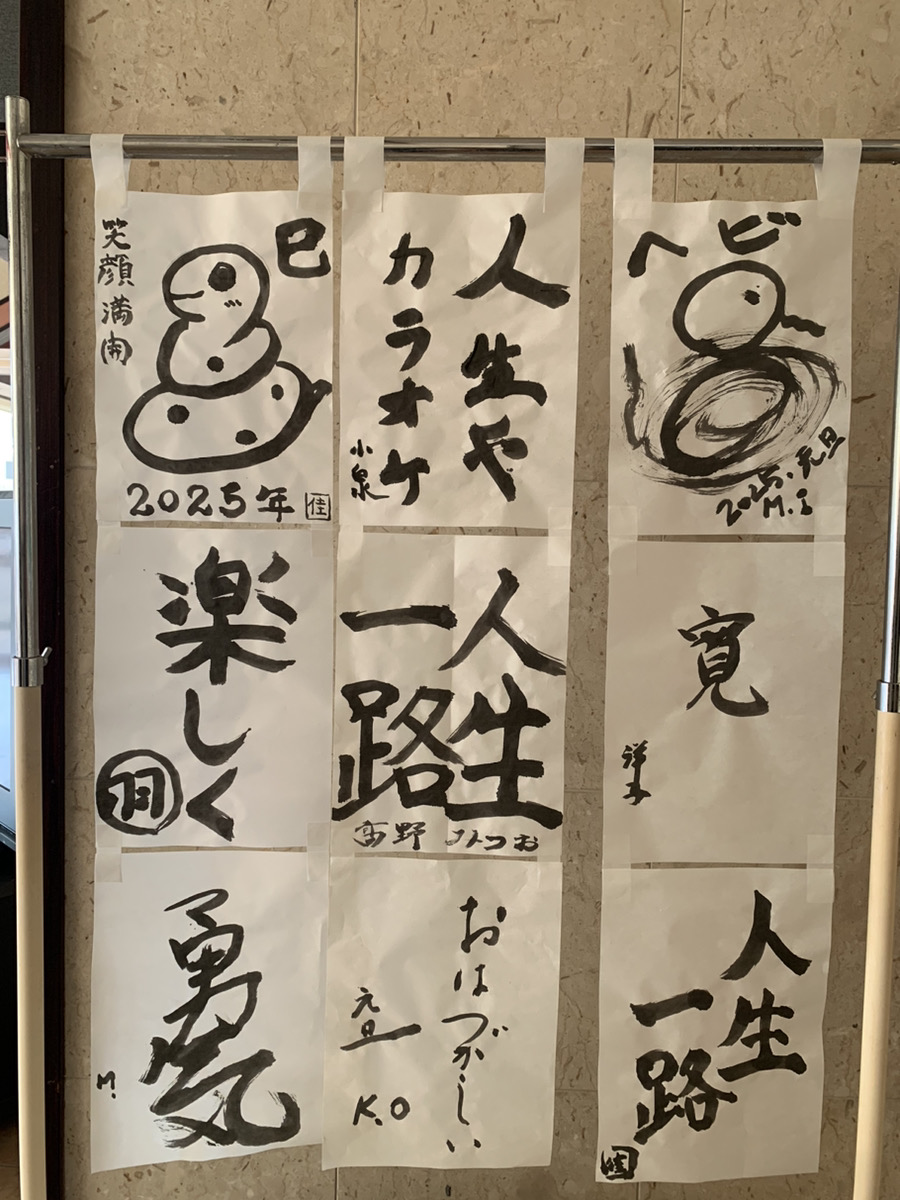 巳
笑顔満開
2025年
佳
人生や
カラオケ
小泉
ヘビ
2025.元旦
M.i
楽しく
人生
一路
高野 みつお
寛
洋子
勇気
M.
おはづかしい
元旦
K.O
人生
一路